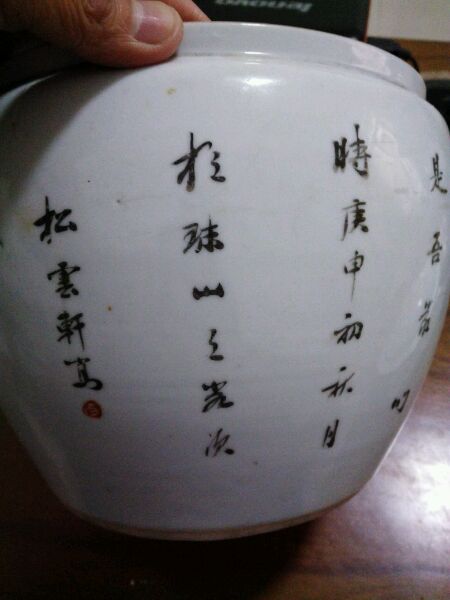 是吾家
時庚申初秋月
於珠山之客次
松雲軒寫
lenovo